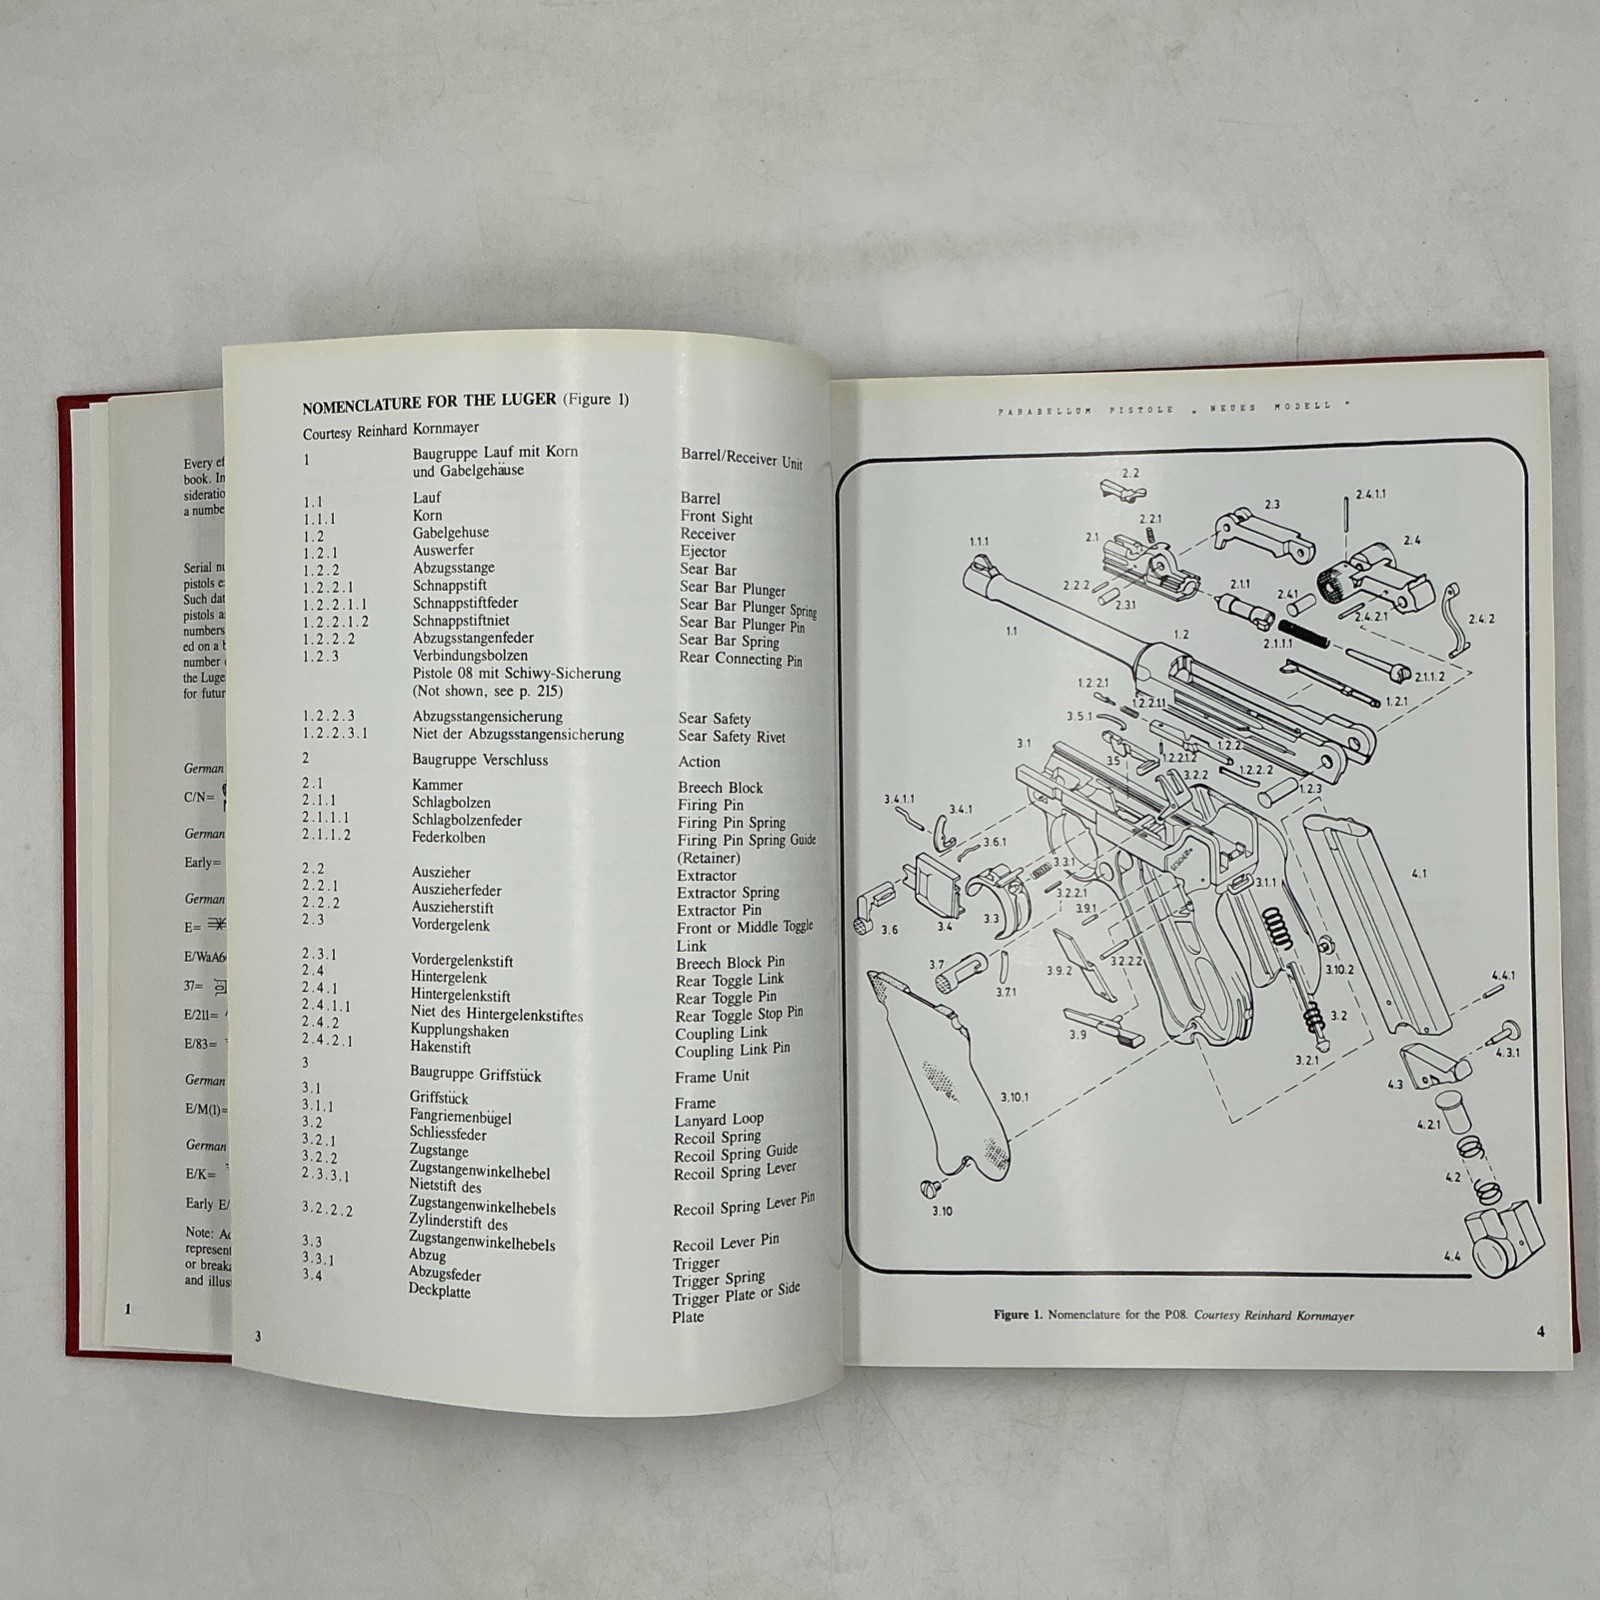 Every ef
book. In
sideratio
a numbe
Serial nu
pistols e
Such dat
pistols a
numbers
ed on a b
number
the Luge
for futur
German
C/N=
German
Early=
German
E=
E/WaA6
37=
E/211=
E/83=
German
E/M(1)=
German
E/K=
Early E/
Note: Ac
represent
or breaka
and illus
1
NOMENCLATURE FOR THE LUGER (Figure 1)
Courtesy Reinhard Kornmayer
1 Baugruppe Lauf mit Korn Barrel/Receiver Unit
und Gabelgehäuse
1.1 Lauf Barrel
1.1.1 Korn Front Sight
1.2 Gabelgehuse Receiver
1.2.1 Auswerfer Ejector
1.2.2 Abzugsstange Sear Bar
1.2.2.1 Schnappstift Sear Bar Plunger
1.2.2.1.1 Schnappstiftfeder Sear Bar Plunger Spring
1.2.2.1.2 Schnappstiftniet Sear Bar Plunger Pin
1.2.2.2 Abzugsstangenfeder Sear Bar Spring
1.2.3 Verbindungsbolzen Rear Connecting Pin
Pistole 08 mit Schiwy-Sicherung
(Not shown, see p. 215)
1.2.2.3 Abzugsstangensicherung Sear Safety
1.2.2.3.1 Niet der Abzugsstangensicherung Sear Safety Rivet
2 Baugruppe Verschluss Action
2.1 Kammer Breech Block
2.1.1 Schlagbolzen Firing Pin
2.1.1.1 Schlagbolzenfeder Firing Pin Spring
2.1.1.2 Federkolben Firing Pin Spring Guide
(Retainer)
2.2 Auszieher Extractor
2.2.1 Auszieherfeder Extractor Spring
2.2.2 Auszieherstift Extractor Pin
2.3 Vordergelenk Front or Middle Toggle
Link
2.3.1 Vordergelenkstift Breech Block Pin
2.4 Hintergelenk Rear Toggle Link
2.4.1 Hintergelenkstift Rear Toggle Pin
2.4.1.1 Niet des Hintergelenkstiftes Rear Toggle Stop Pin
2.4.2 Kupplungshaken Coupling Link
2.4.2.1 Hakenstift Coupling Link Pin
3 Baugruppe Griffstück Frame Unit
3.1 Griffstück Frame
3.1.1 Fangriemenbügel Lanyard Loop
3.2 Schliessfeder Recoil Spring
3.2.1 Zugstange Recoil Spring Guide
3.2.2 Zugstangenwinkelhebel Recoil Spring Lever
2.3.3.1 Nietstift des
Zugstangenwinkelhebels Recoil Spring Lever Pin
3.2.2.2 Zylinderstift des
Zugstangenwinkelhebels Recoil Lever Pin
3.3 Abzug Trigger
3.3.1 Abzugsfeder Trigger Spring
3.4 Deckplatte Trigger Plate or Side
Plate
3
PARABELLUM PISTOLE „ NEUES MODELL "
2.2
2.4.1.1
2.3
2.2.1
2.1
2.4
1.1.1
2.2.2
2.3.1
2.1.1
2.4.1
2.4.2.1
2.4.2
1.1
1.2
2.1.1.1
2.1.1.2
1.2.2.1
1.2.2.1.1
1.2.1
3.5.1
3.1
3.5
1.2.2.1.2
1.2.2
3.2.2
1.2.2.2
1.2.3
3.4.1.1
3.4.1
3.6.1
3.3.1
4.1
3.2.2.1
3.1.1
3.9.1
3.6
3.4
3.3
3.7
3.7.1
3.9.2
3.2.2.2
3.10.2
4.4.1
3.9
3.2
3.2.1
4.3.1
4.3
3.10.1
4.2.1
4.2
3.10
4.4
Figure 1. Nomenclature for the P.08. Courtesy Reinhard Kornmayer
4